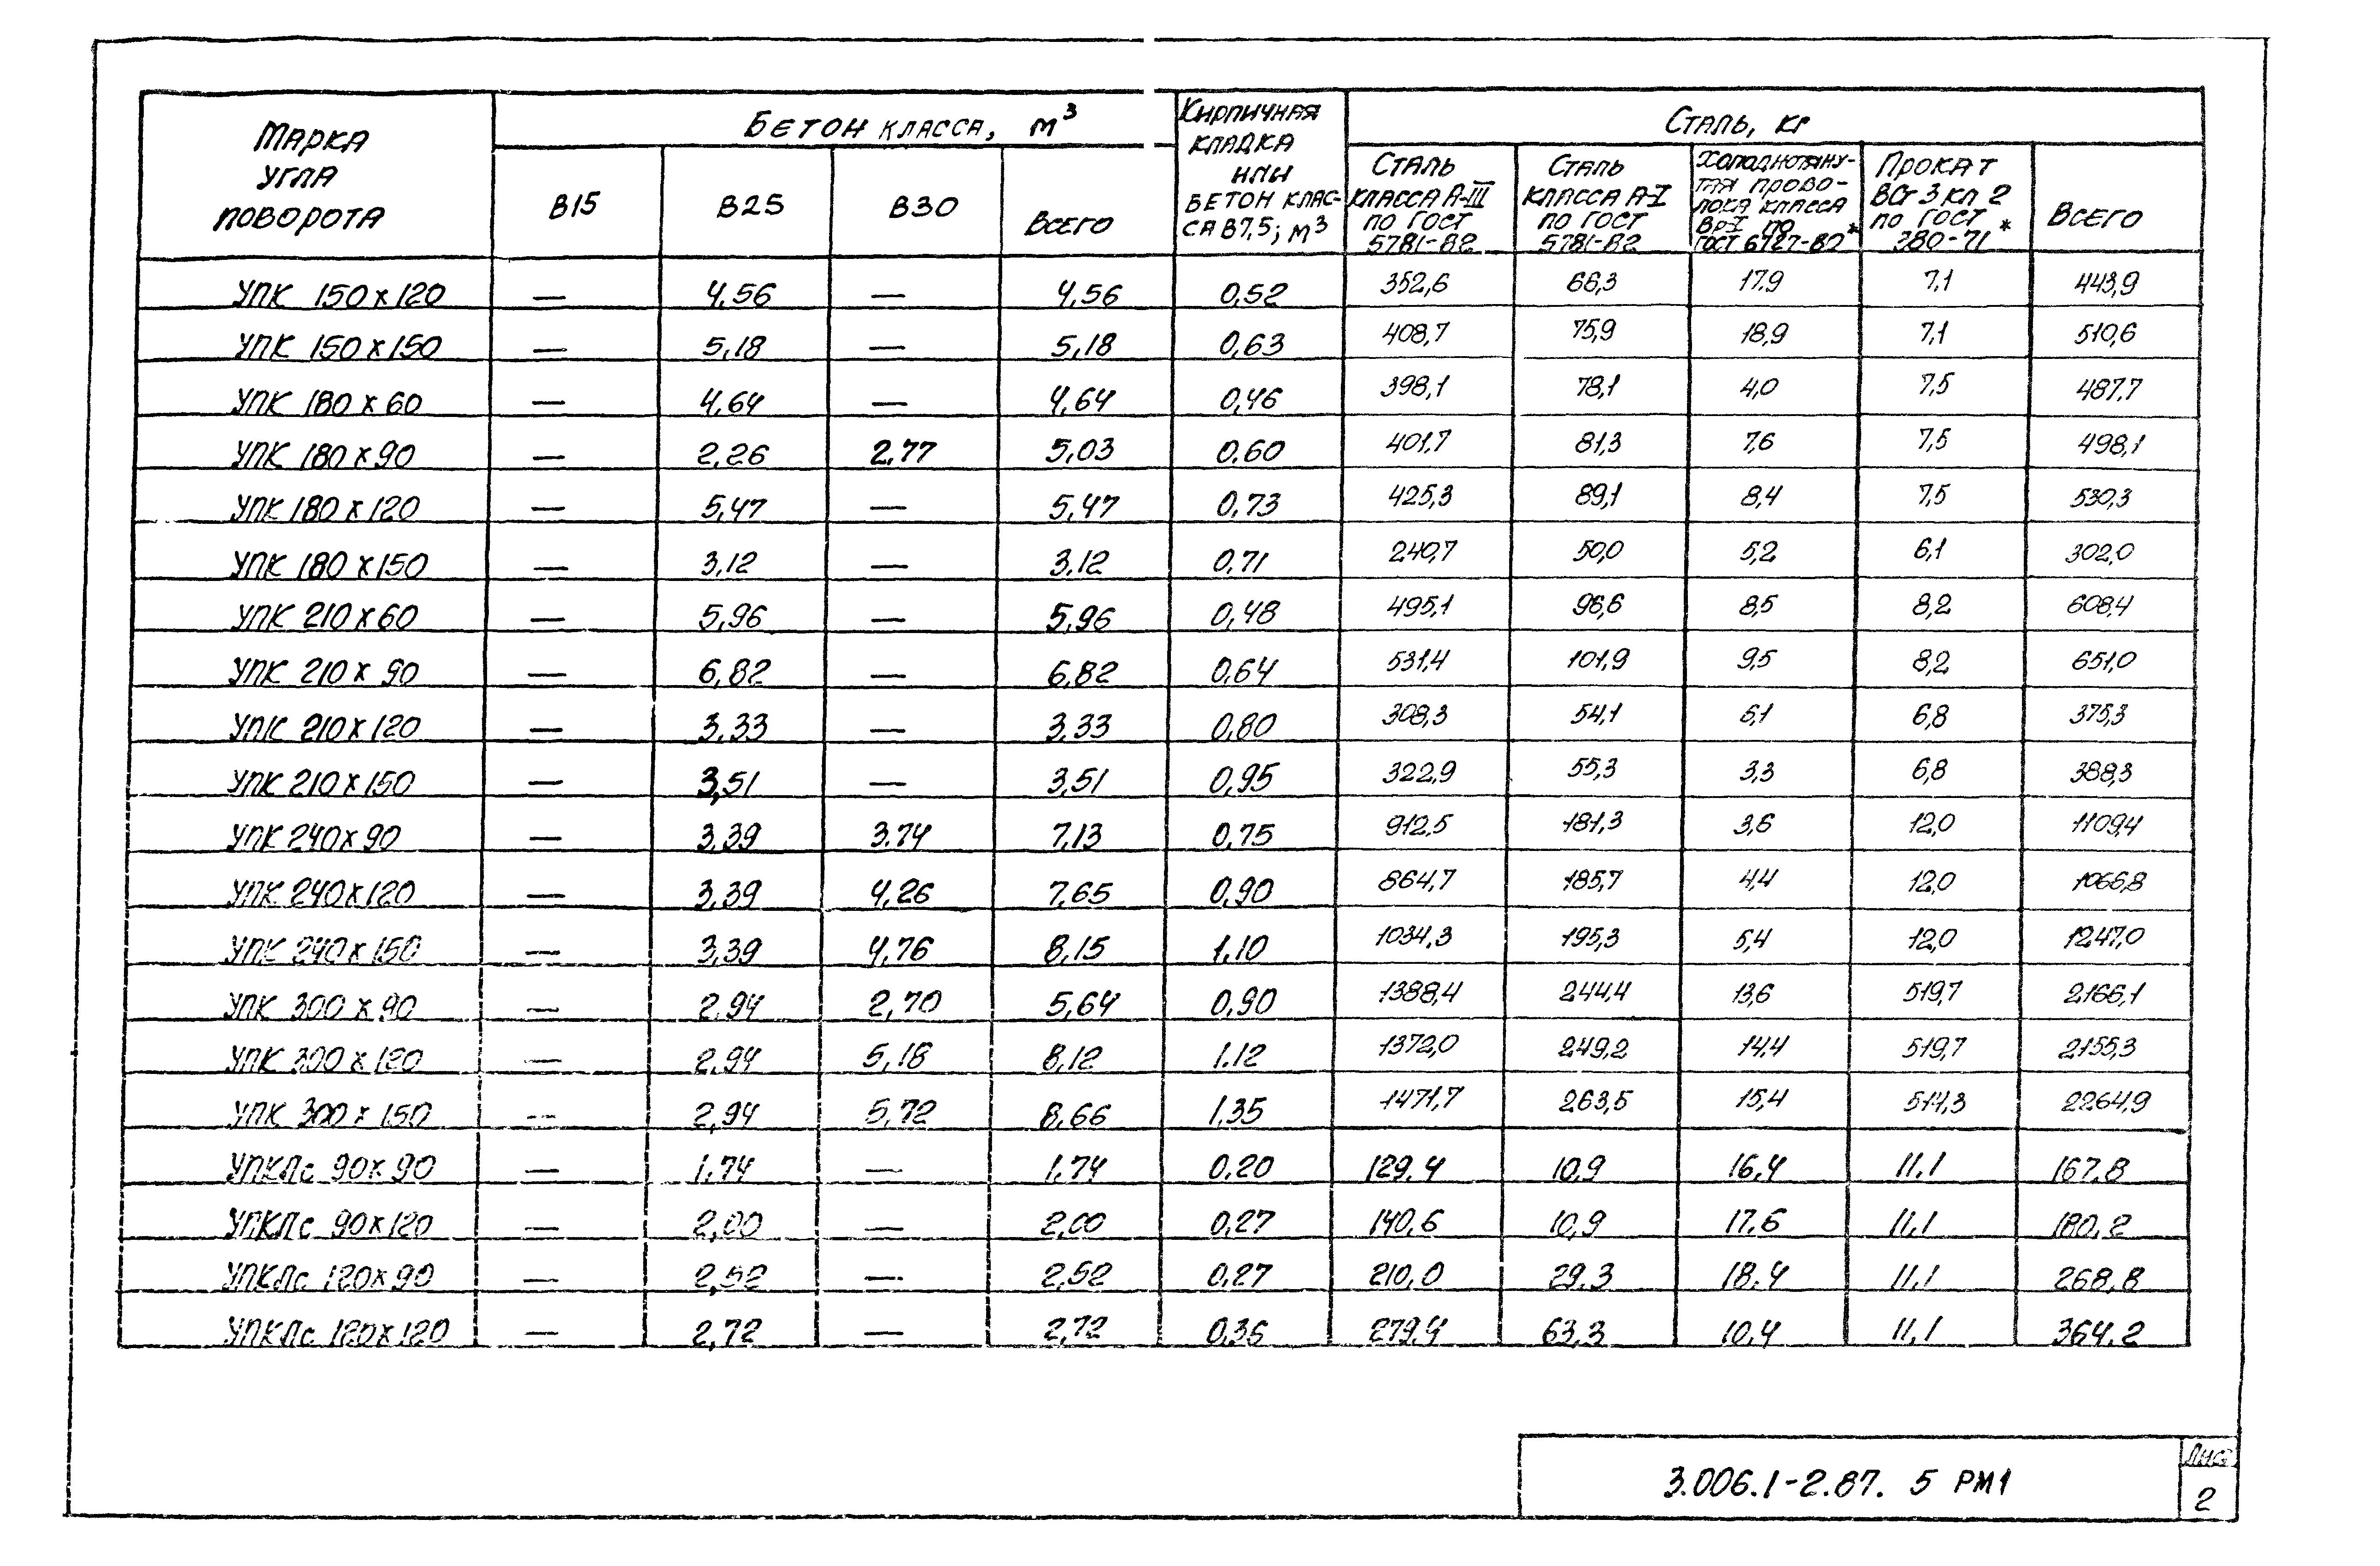 Марка угла поворота
Бетон класса, м³
В15
В25
В30
Всего
Кирпичная кладка или бетон класса В7,5; м³
Сталь, кг
Сталь класса А-III по ГОСТ 5781-82
Сталь класса А-I по ГОСТ 5781-82
Холоднотянутая проволока класса Вр-I по ГОСТ 6727-80*
Прокат ВСт 3 кп 2 по ГОСТ 380-71*
Всего
УПК 150х120 — 4,56 — 4,56 0,52 352,6 66,3 17,9 7,1 443,9
УПК 150х150 — 5,18 — 5,18 0,63 408,7 75,9 18,9 7,1 510,6
УПК 180х60 — 4,64 — 4,64 0,46 398,1 78,1 4,0 7,5 487,7
УПК 180х90 — 2,26 2,77 5,03 0,60 401,7 81,3 7,6 7,5 498,1
УПК 180х120 — 5,47 — 5,47 0,73 425,3 89,1 8,4 7,5 530,3
УПК 180х150 — 3,12 — 3,12 0,71 240,7 50,0 5,2 6,1 302,0
УПК 210х60 — 5,96 — 5,96 0,48 495,1 96,6 8,5 8,2 608,4
УПК 210х90 — 6,82 — 6,82 0,64 531,4 101,9 9,5 8,2 651,0
УПК 210х120 — 3,33 — 3,33 0,80 308,3 54,1 6,1 6,8 375,3
УПК 210х150 — 3,51 — 3,51 0,95 322,9 55,3 3,3 6,8 388,3
УПК 240х90 — 3,39 3,74 7,13 0,75 912,5 181,3 3,6 12,0 1109,4
УПК 240х120 — 3,39 4,26 7,65 0,90 864,7 185,7 4,4 12,0 1066,8
УПК 240х150 — 3,39 4,76 8,15 1,10 1034,3 195,3 5,4 12,0 1247,0
УПК 300х90 — 2,94 2,70 5,64 0,90 1388,4 244,4 13,6 519,7 2166,1
УПК 300х120 — 2,94 5,18 8,12 1,12 1372,0 249,2 14,4 519,7 2155,3
УПК 300х150 — 2,94 5,72 8,66 1,35 1471,7 263,5 15,4 514,3 2264,9
УПКЛс 90х90 — 1,74 — 1,74 0,20 129,4 10,9 16,4 11,1 167,8
УПКЛс 90х120 — 2,00 — 2,00 0,27 140,6 10,9 17,6 11,1 180,2
УПКЛс 120х90 — 2,52 — 2,52 0,27 210,0 29,3 18,4 11,1 268,8
УПКЛс 120х120 — 2,72 — 2,72 0,36 279,4 63,3 10,4 11,1 364,2
3.006.1-2.87. 5 РМ1
Лис
2